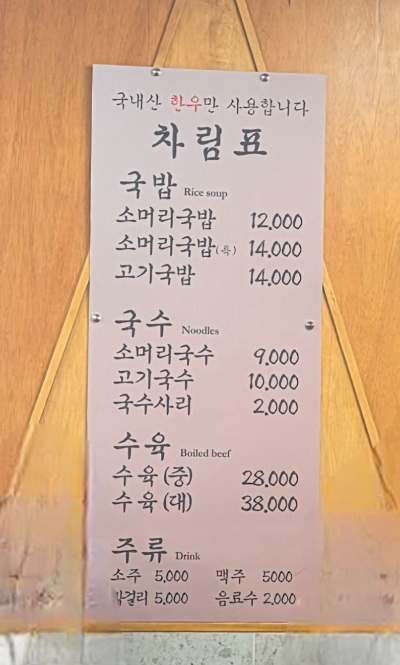 국내산 한우만 사용합니다
차림표
국밥 Rice soup
소머리국밥 12,000
소머리국밥(특) 14,000
고기국밥 14,000
국수 Noodles
소머리국수 9,000
고기국수 10,000
국수사리 2,000
수육 Boiled beef
수육(중) 28,000
수육(대) 38,000
주류 Drink
소주 5,000 맥주 5000
막걸리 5,000 음료수 2,000